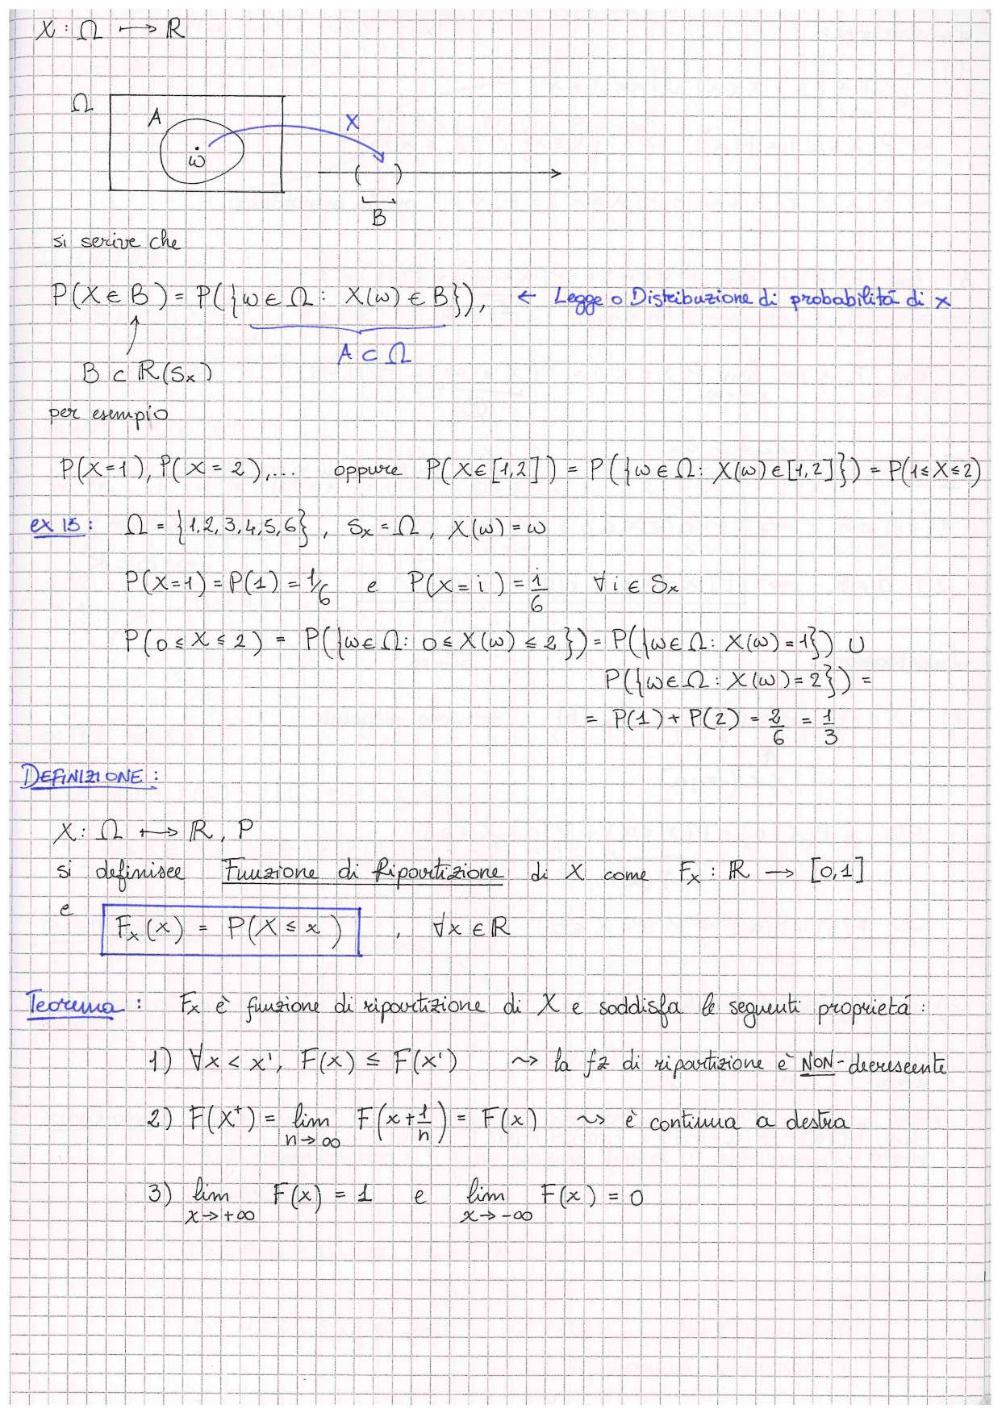 X : Ω ⟼ R
Ω
A
X
ω
( )
B
si scrive che
P(X ∈ B) = P({ω ∈ Ω : X(ω) ∈ B}), ← Legge o Distribuzione di probabilitá di x
A ⊂ Ω
B ⊂ R(Sx)
per esempio
P(X=1), P(X=2),... oppure P(X∈[1,2]) = P({ω∈Ω: X(ω)∈[1,2]}) = P(1≤X≤2)
ex 15: Ω = {1,2,3,4,5,6}, Sx = Ω, X(ω) = ω
P(X=1) = P(1) = 1/6 e P(X=i) = 1/6 ∀i ∈ Sx
P(0≤X≤2) = P({ω∈Ω: 0≤X(ω)≤2}) = P({ω∈Ω: X(ω)=1}) ∪
P({ω∈Ω: X(ω)=2}) =
= P(1) + P(2) = 2/6 = 1/3
DEFINIZIONE:
X : Ω ⟼ R, P
si definisce Funzione di Ripartizione di X come Fx : R → [0,1]
e
Fx(x) = P(X ≤ x) , ∀x ∈ R
Teorema: Fx è funzione di ripartizione di X e soddisfa le seguenti proprietá:
1) ∀x < x', F(x) ≤ F(x') ⤳ la fz di ripartizione è NON-decrescente
2) F(X⁺) = lim n→∞ F(x+1/n) = F(x) ⤳ è continua a destra
3) lim x→+∞ F(x) = 1 e lim x→-∞ F(x) = 0